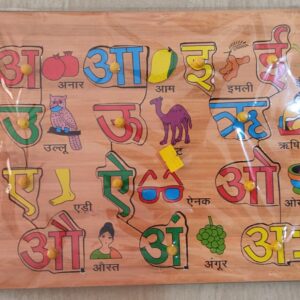 अ आ इ ई
अनार आम इमली
उ ऊ ऋ
उल्लू ट ऋषि
ए ऐ ओ
एड़ी ऐनक
औ अं अः
औरत अंगूर